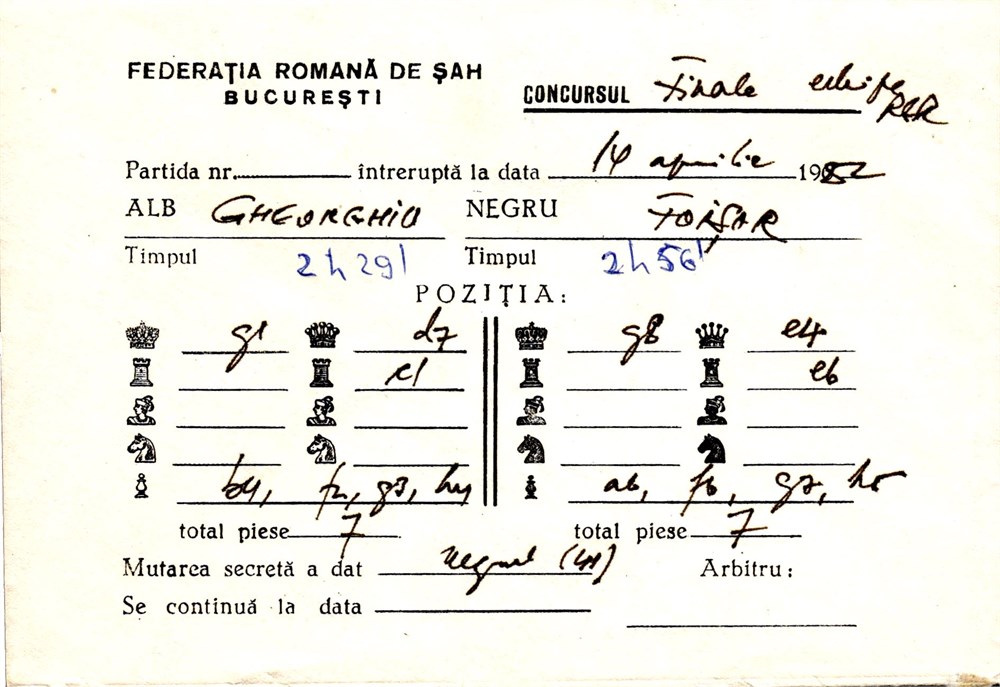 FEDERAȚIA ROMANĂ DE ȘAH
BUCUREȘTI
CONCURSUL Finala echipe
RSR
Partida nr. întreruptă la data 14 aprilie 1982
ALB GHEORGHIU NEGRU FOIȘAR
Timpul 2h29' Timpul 2h56'
POZIȚIA:
g1 d7 g8 e4
e1 e6
b4, f2, g3, h4 a6, f6, g7, h5
total piese 7 total piese 7
Mutarea secretă a dat negrul (41) Arbitru:
Se continuă la data